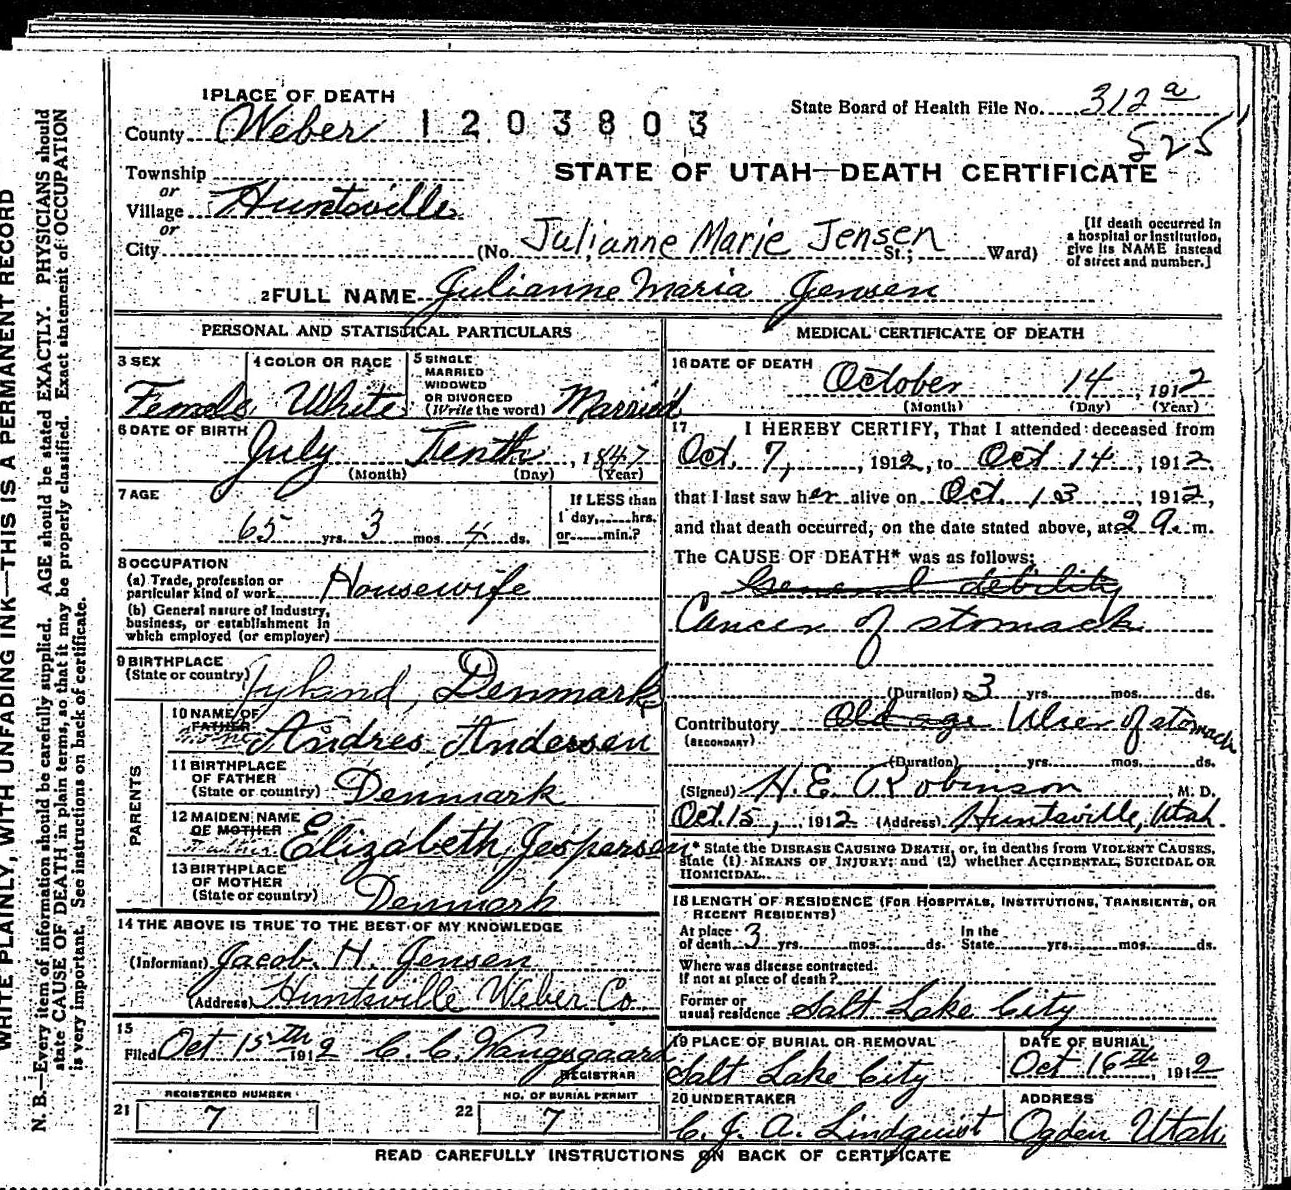 WRITE PLAINLY, WITH UNFADING INK—THIS IS A PERMANENT RECORD
N. B.—Every item of information should be carefully supplied. AGE should be stated EXACTLY. PHYSICIANS should
state CAUSE OF DEATH in plain terms, so that it may be properly classified. Exact statement of OCCUPATION
is very important. See instructions on back of certificate.
1 PLACE OF DEATH
State Board of Health File No. 312 a
County Weber 1203803
525
STATE OF UTAH—DEATH CERTIFICATE
Township
or
Village Huntsville
or
City (No. Julianne Marie Jensen St.; Ward)
[If death occurred in
a hospital or institution,
give its NAME instead
of street and number.]
2 FULL NAME Julianne Maria Jensen
PERSONAL AND STATISTICAL PARTICULARS
3 SEX
Female
4 COLOR OR RACE
White
5 SINGLE
MARRIED
WIDOWED
OR DIVORCED
(Write the word) Married
6 DATE OF BIRTH
July Tenth, 1847
(Month) (Day) (Year)
7 AGE
65 yrs. 3 mos. 4 ds.
If LESS than
1 day, hrs.
or min.?
8 OCCUPATION
(a) Trade, profession or
particular kind of work Housewife
(b) General nature of industry,
business, or establishment in
which employed (or employer)
9 BIRTHPLACE
(State or country) Jyland, Denmark
PARENTS
10 NAME OF
FATHER Andres Andersen
11 BIRTHPLACE
OF FATHER
(State or country) Denmark
12 MAIDEN NAME
OF MOTHER Elizabeth Jespersen
13 BIRTHPLACE
OF MOTHER
(State or country) Denmark
14 THE ABOVE IS TRUE TO THE BEST OF MY KNOWLEDGE
(Informant) Jacob. H. Jensen
(Address) Huntsville Weber Co.
15
Filed Oct 15th 1912 C. C. Wangsgaard
REGISTRAR
REGISTERED NUMBER
21 7
NO. OF BURIAL PERMIT
22 7
MEDICAL CERTIFICATE OF DEATH
16 DATE OF DEATH
October 14, 1912
(Month) (Day) (Year)
17 I HEREBY CERTIFY, That I attended deceased from
Oct. 7, 1912, to Oct 14, 1912,
that I last saw her alive on Oct. 13, 1912,
and that death occurred, on the date stated above, at 2 a. m.
The CAUSE OF DEATH* was as follows:
General debility
Cancer of stomach
(Duration) 3 yrs. mos. ds.
Contributory Old age Ulcer of stomach
(SECONDARY)
(Duration) yrs. mos. ds.
(Signed) H. E. Robinson, M. D.
Oct. 15, 1912 (Address) Huntsville, Utah.
* State the DISEASE CAUSING DEATH, or, in deaths from VIOLENT CAUSES,
state (1) MEANS OF INJURY; and (2) whether ACCIDENTAL, SUICIDAL OR
HOMICIDAL.
18 LENGTH OF RESIDENCE (FOR HOSPITALS, INSTITUTIONS, TRANSIENTS, OR
RECENT RESIDENTS)
At place
of death 3 yrs. mos. ds.
In the
State yrs. mos. ds.
Where was disease contracted,
If not at place of death?
Former or
usual residence Salt Lake City
19 PLACE OF BURIAL OR REMOVAL
Salt Lake City
DATE OF BURIAL
Oct 16th, 1912
20 UNDERTAKER
C. J. A. Lindquist
ADDRESS
Ogden Utah
READ CAREFULLY INSTRUCTIONS ON BACK OF CERTIFICATE